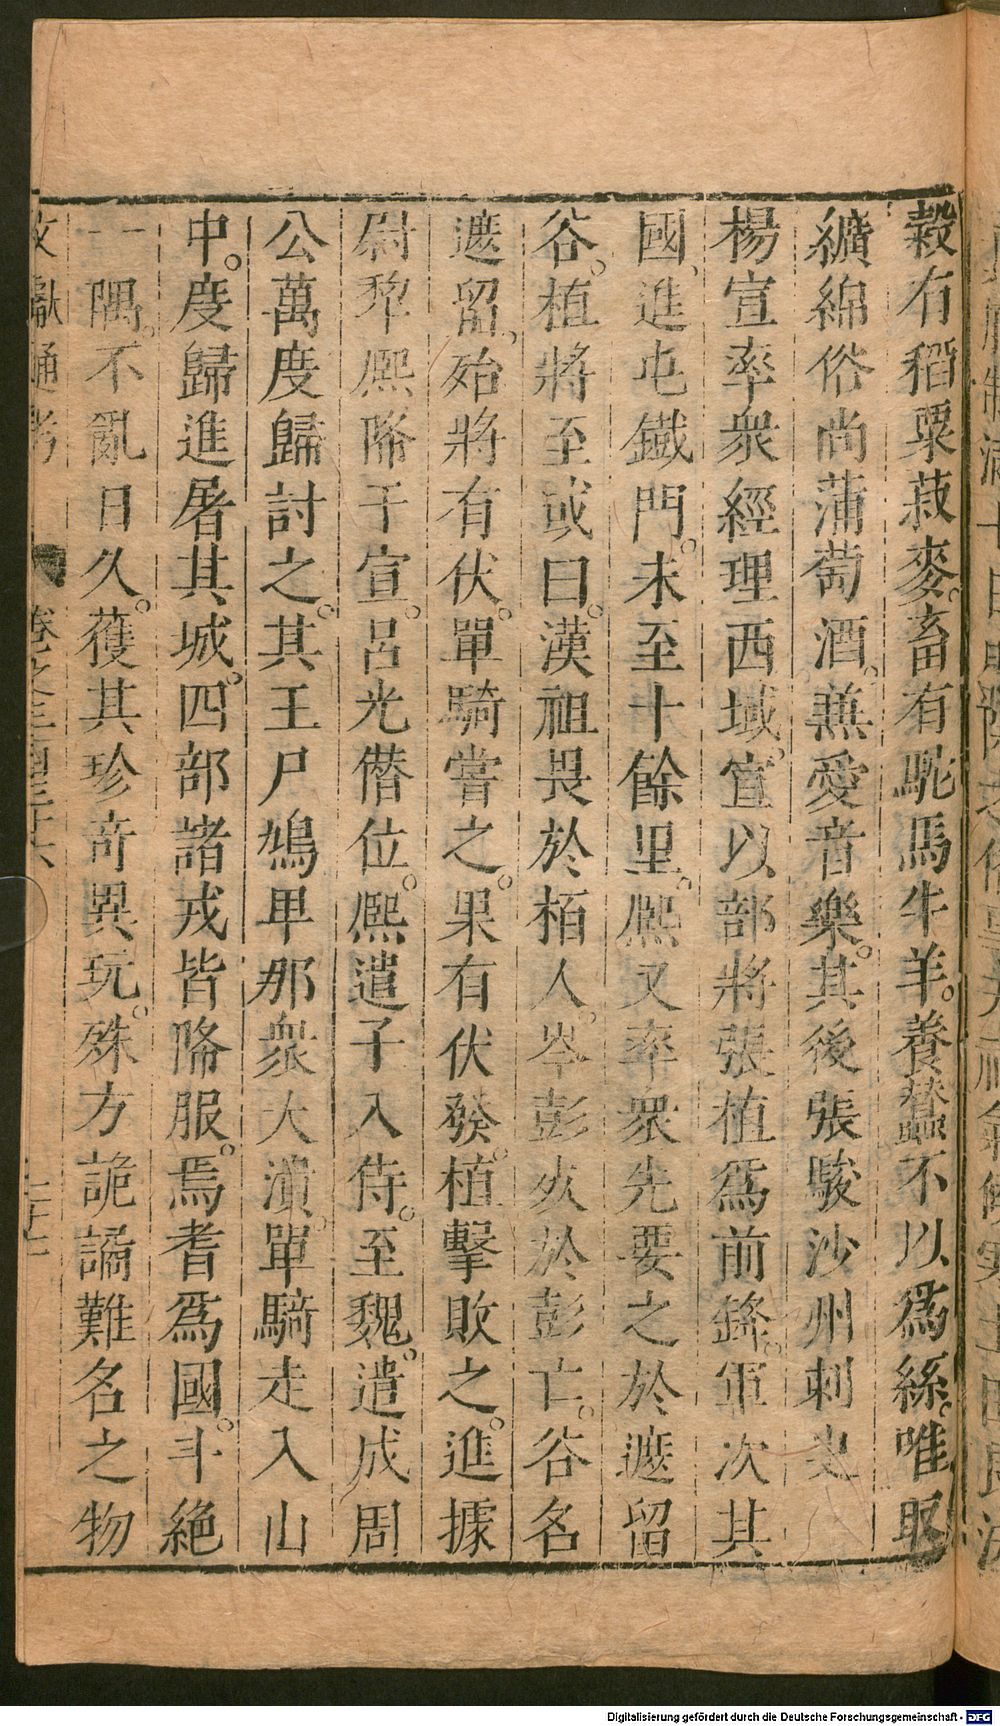 穀有稻粟菽麥。畜有駞馬牛羊。養蠶不以爲絲。唯取
纊綿俗尚蒲萄酒。兼愛音樂。其後張駿沙州刺史
楊宣率衆經理西域。宣以部將張植爲前鋒。軍次其
國、進屯鐵門。未至十餘里。熈又率衆先要之於遮留
谷。植將至或曰。漢祖畏於栢人。岑彭死於彭亡。谷名
遮留、殆將有伏。單騎嘗之。果有伏發。植擊敗之。進據
尉犂熈降于宣。呂光僣位。熈遣子入侍。至魏。遣成周
公萬度歸討之。其王尸鳩𤰞那衆大潰。單騎走入山
中。度歸進屠其城。四部諸戎皆降服。焉耆爲國。斗絕
一隅。不亂日久。獲其珍竒異玩。殊方詭譎難名之物
文獻通考 卷之三百三十六 二十七
Digitalisierung gefördert durch die Deutsche Forschungsgemeinschaft - DFG